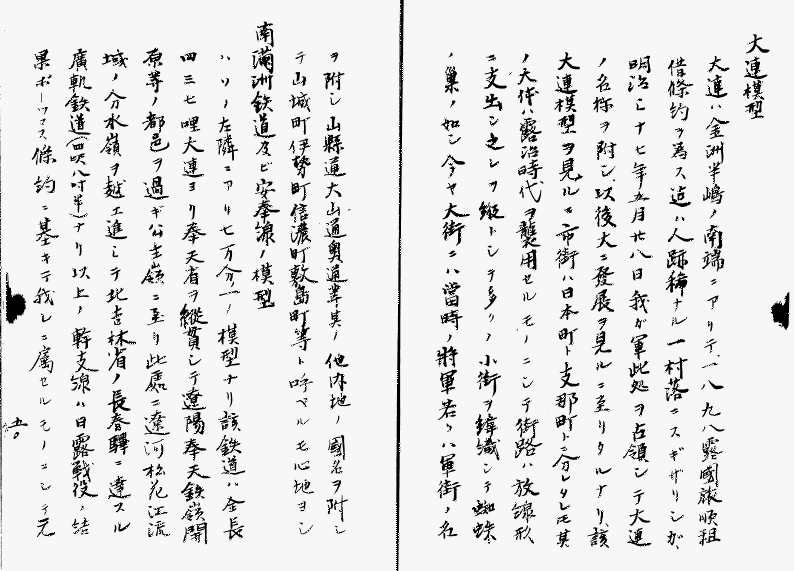 大連模型
大連ハ金洲半嶋ノ南端ニアリテ一八九八露國旅順租
借條約ヲ為ス迠ハ人跡稀ナル一村落ニスギザリシガ
明治三十七年五月廿八日我ガ軍此処ヲ占領シテ大連
ノ名称ヲ附シ以後大ニ発展ヲ見ルニ至リタルナリ該
大連模型ヲ見ルモ市街ハ日本町ト支那町トニ分レタレモ其
ノ大体ハ露治時代ヲ襲用セルモノニシテ街路ハ放線形
ニ支出シ之レヲ縦トシテ多クノ小街ヲ緯織シテ蜘蛛
ノ巣ノ如シ今ヤ大街ニハ當時ノ將軍若クハ軍街ノ名
ヲ附シ山縣通大山通奥通等其ノ他内地ノ國名ヲ附シ
テ山城町伊勢町信濃町敷島町等ト呼ベルモ心地ヨシ
南滿洲鉄道及ビ安奉線ノ模型
ハソノ左隣ニアリ七万分一ノ模型ナリ該鉄道ハ全長
四三七哩大連ヨリ奉天省ヲ縦貫シテ遼陽奉天鉄嶺開
原等ノ都邑ヲ過ギ公主嶺ニ至リ此處ニ遼河松花江流
域ノ分水嶺ヲ越エ進ミテ北吉林省ノ長春驛ニ達スル
廣軌鉄道(四呎八吋半)ナリ以上ノ幹支線ハ日露戰役ノ結
果ポーツマス條約ニ基キテ我レニ属セルモノニシテ元